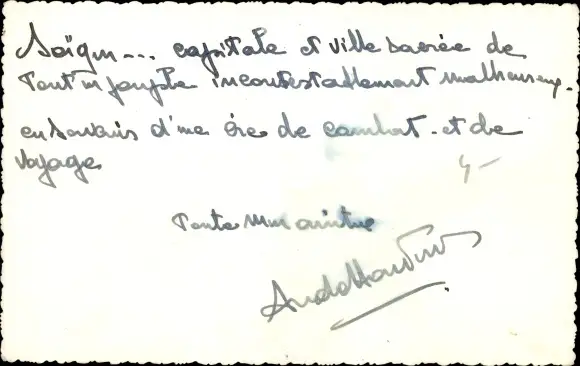 Saïgon... capitale et ville sacrée de
tout un peuple incontestablement malheureux.
en souvenir d'une ère de combat - et de
voyage
4 -
Toute mon amitié